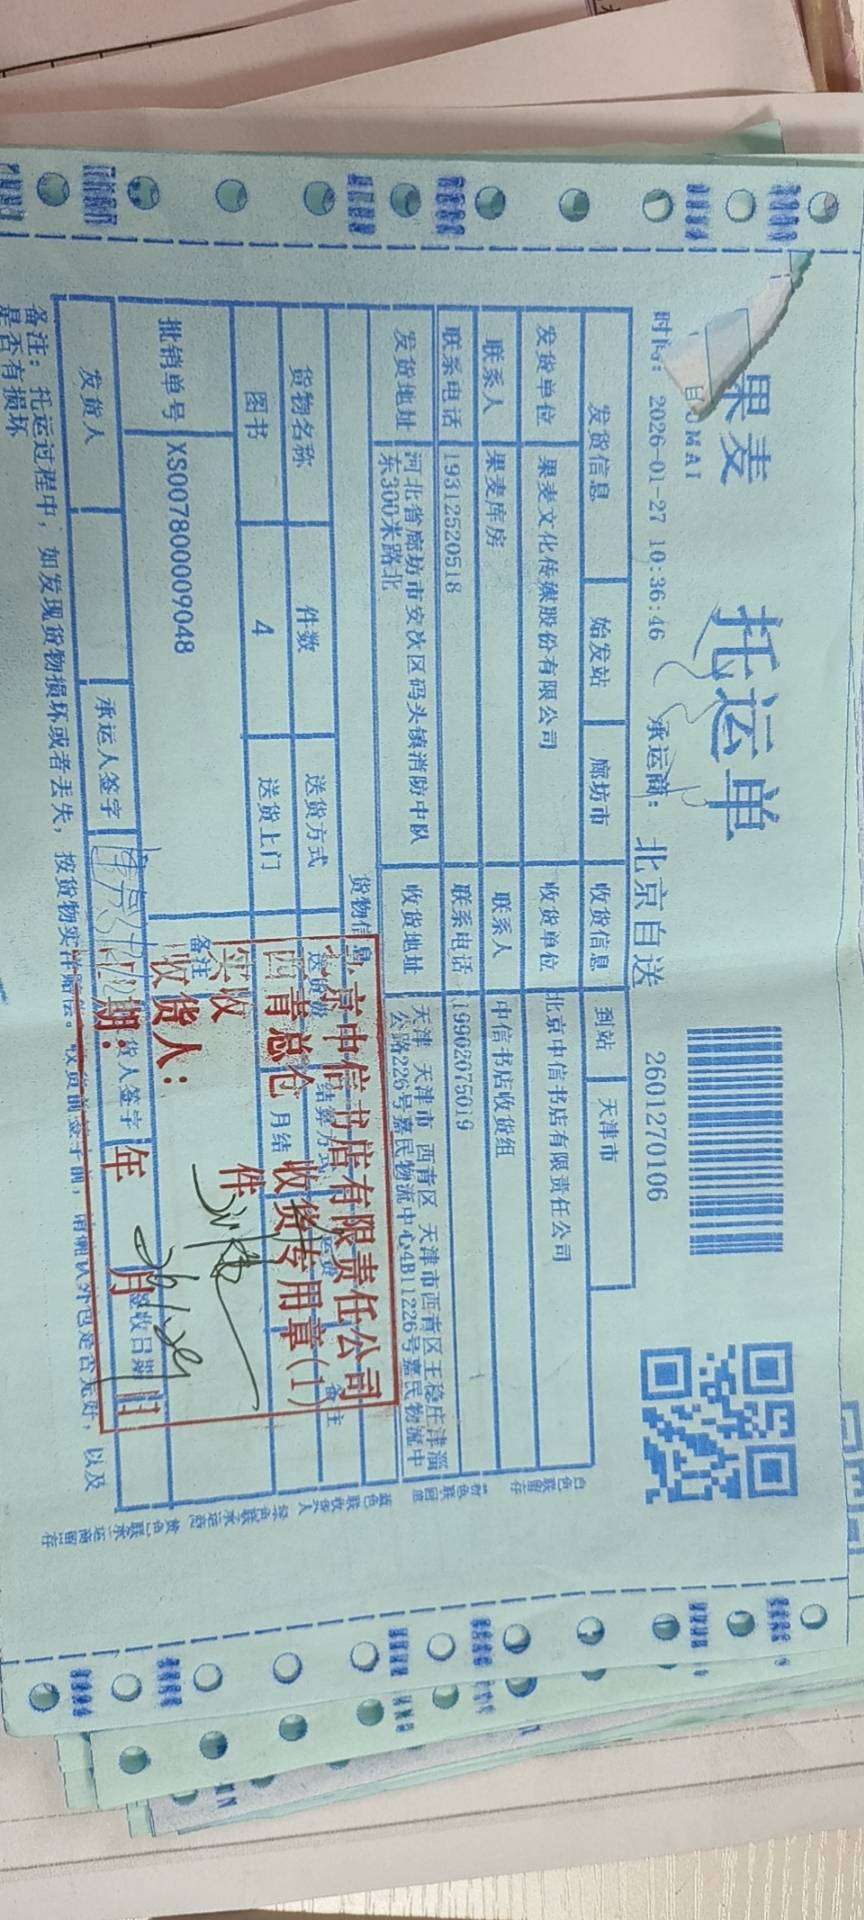 果麦
托运单
时间：2026-01-27 10:36:46 承运商：北京自送 2601270106
发货信息 始发站 廊坊市 收货信息 到站 天津市
发货单位 果麦文化传媒股份有限公司 收货单位 北京中信书店有限责任公司
联系人 果麦库房 联系人 中信书店收货组
联系电话 19312520518 联系电话 19902075019
发货地址 河北省廊坊市安次区码头镇消防中队东300米路北 收货地址 天津 天津市 西青区 天津市西青区王稳庄津淄公路226号嘉民物流中心4B11226号嘉民物流中
货物信息
货物名称 件数 送货方式 结算方式 备注
图书 4 送货上门 月结
批销单号 XS007800009048 备注
发货人 承运人签字 收货人签字 签收日期
备注：托运过程中，如发现货物损坏或者丢失，按货物实洋赔偿。收货前签字前，请确认外包是否完好，以及
是否有损坏
北京中信书店有限责任公司
西青总仓 收货专用章(1)
实收 件
收货人：
日期： 年 月 日
白色联留存
蓝色联收货人
绿色联承运商
黄色联承运商留存